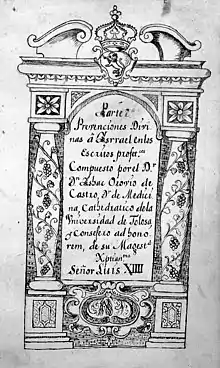 Parte 2ª
Prevenciones Divi
nas â Ysrrael en los
Escritos profa.cos
Compuesto por el D.r
D.n Ishac Orovio de
Castro, D.r de Medici
na, Cathedratico de la
Vniversidad de Tolosa,
y Consejero ad hono
rem, de su Magest.d
Xptian.ma
Señor Luis XIIII